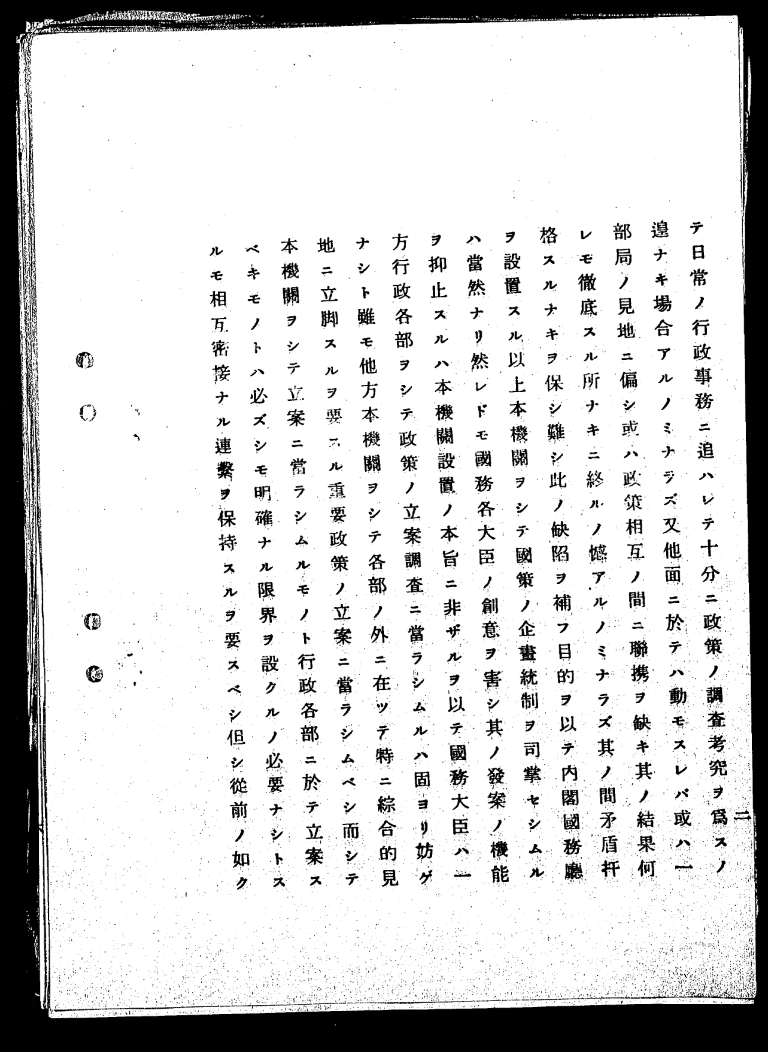 二
テ日常ノ行政事務ニ追ハレテ十分ニ政策ノ調査考究ヲ爲スノ
遑ナキ場合アルノミナラズ又他面ニ於テハ動モスレバ或ハ一
部局ノ見地ニ偏シ或ハ政策相互ノ間ニ聯携ヲ缺キ其ノ結果何
レモ徹底スル所ナキニ終ルノ憾アルノミナラズ其ノ間矛盾扞
格スルナキヲ保シ難シ此ノ缺陷ヲ補フ目的ヲ以テ内閣國務廳
ヲ設置スル以上本機關ヲシテ國策ノ企畫統制ヲ司掌セシムル
ハ當然ナリ然レドモ國務各大臣ノ創意ヲ害シ其ノ發案ノ機能
ヲ抑止スルハ本機關設置ノ本旨ニ非ザルヲ以テ國務大臣ハ一
方行政各部ヲシテ政策ノ立案調査ニ當ラシムルハ固ヨリ妨ゲ
ナシト雖モ他方本機關ヲシテ各部ノ外ニ在ツテ特ニ綜合的見
地ニ立脚スルヲ要スル重要政策ノ立案ニ當ラシムベシ而シテ
本機關ヲシテ立案ニ當ラシムルモノト行政各部ニ於テ立案ス
ベキモノトハ必ズシモ明確ナル限界ヲ設クルノ必要ナシトス
ルモ相互密接ナル連繫ヲ保持スルヲ要スベシ但シ從前ノ如ク